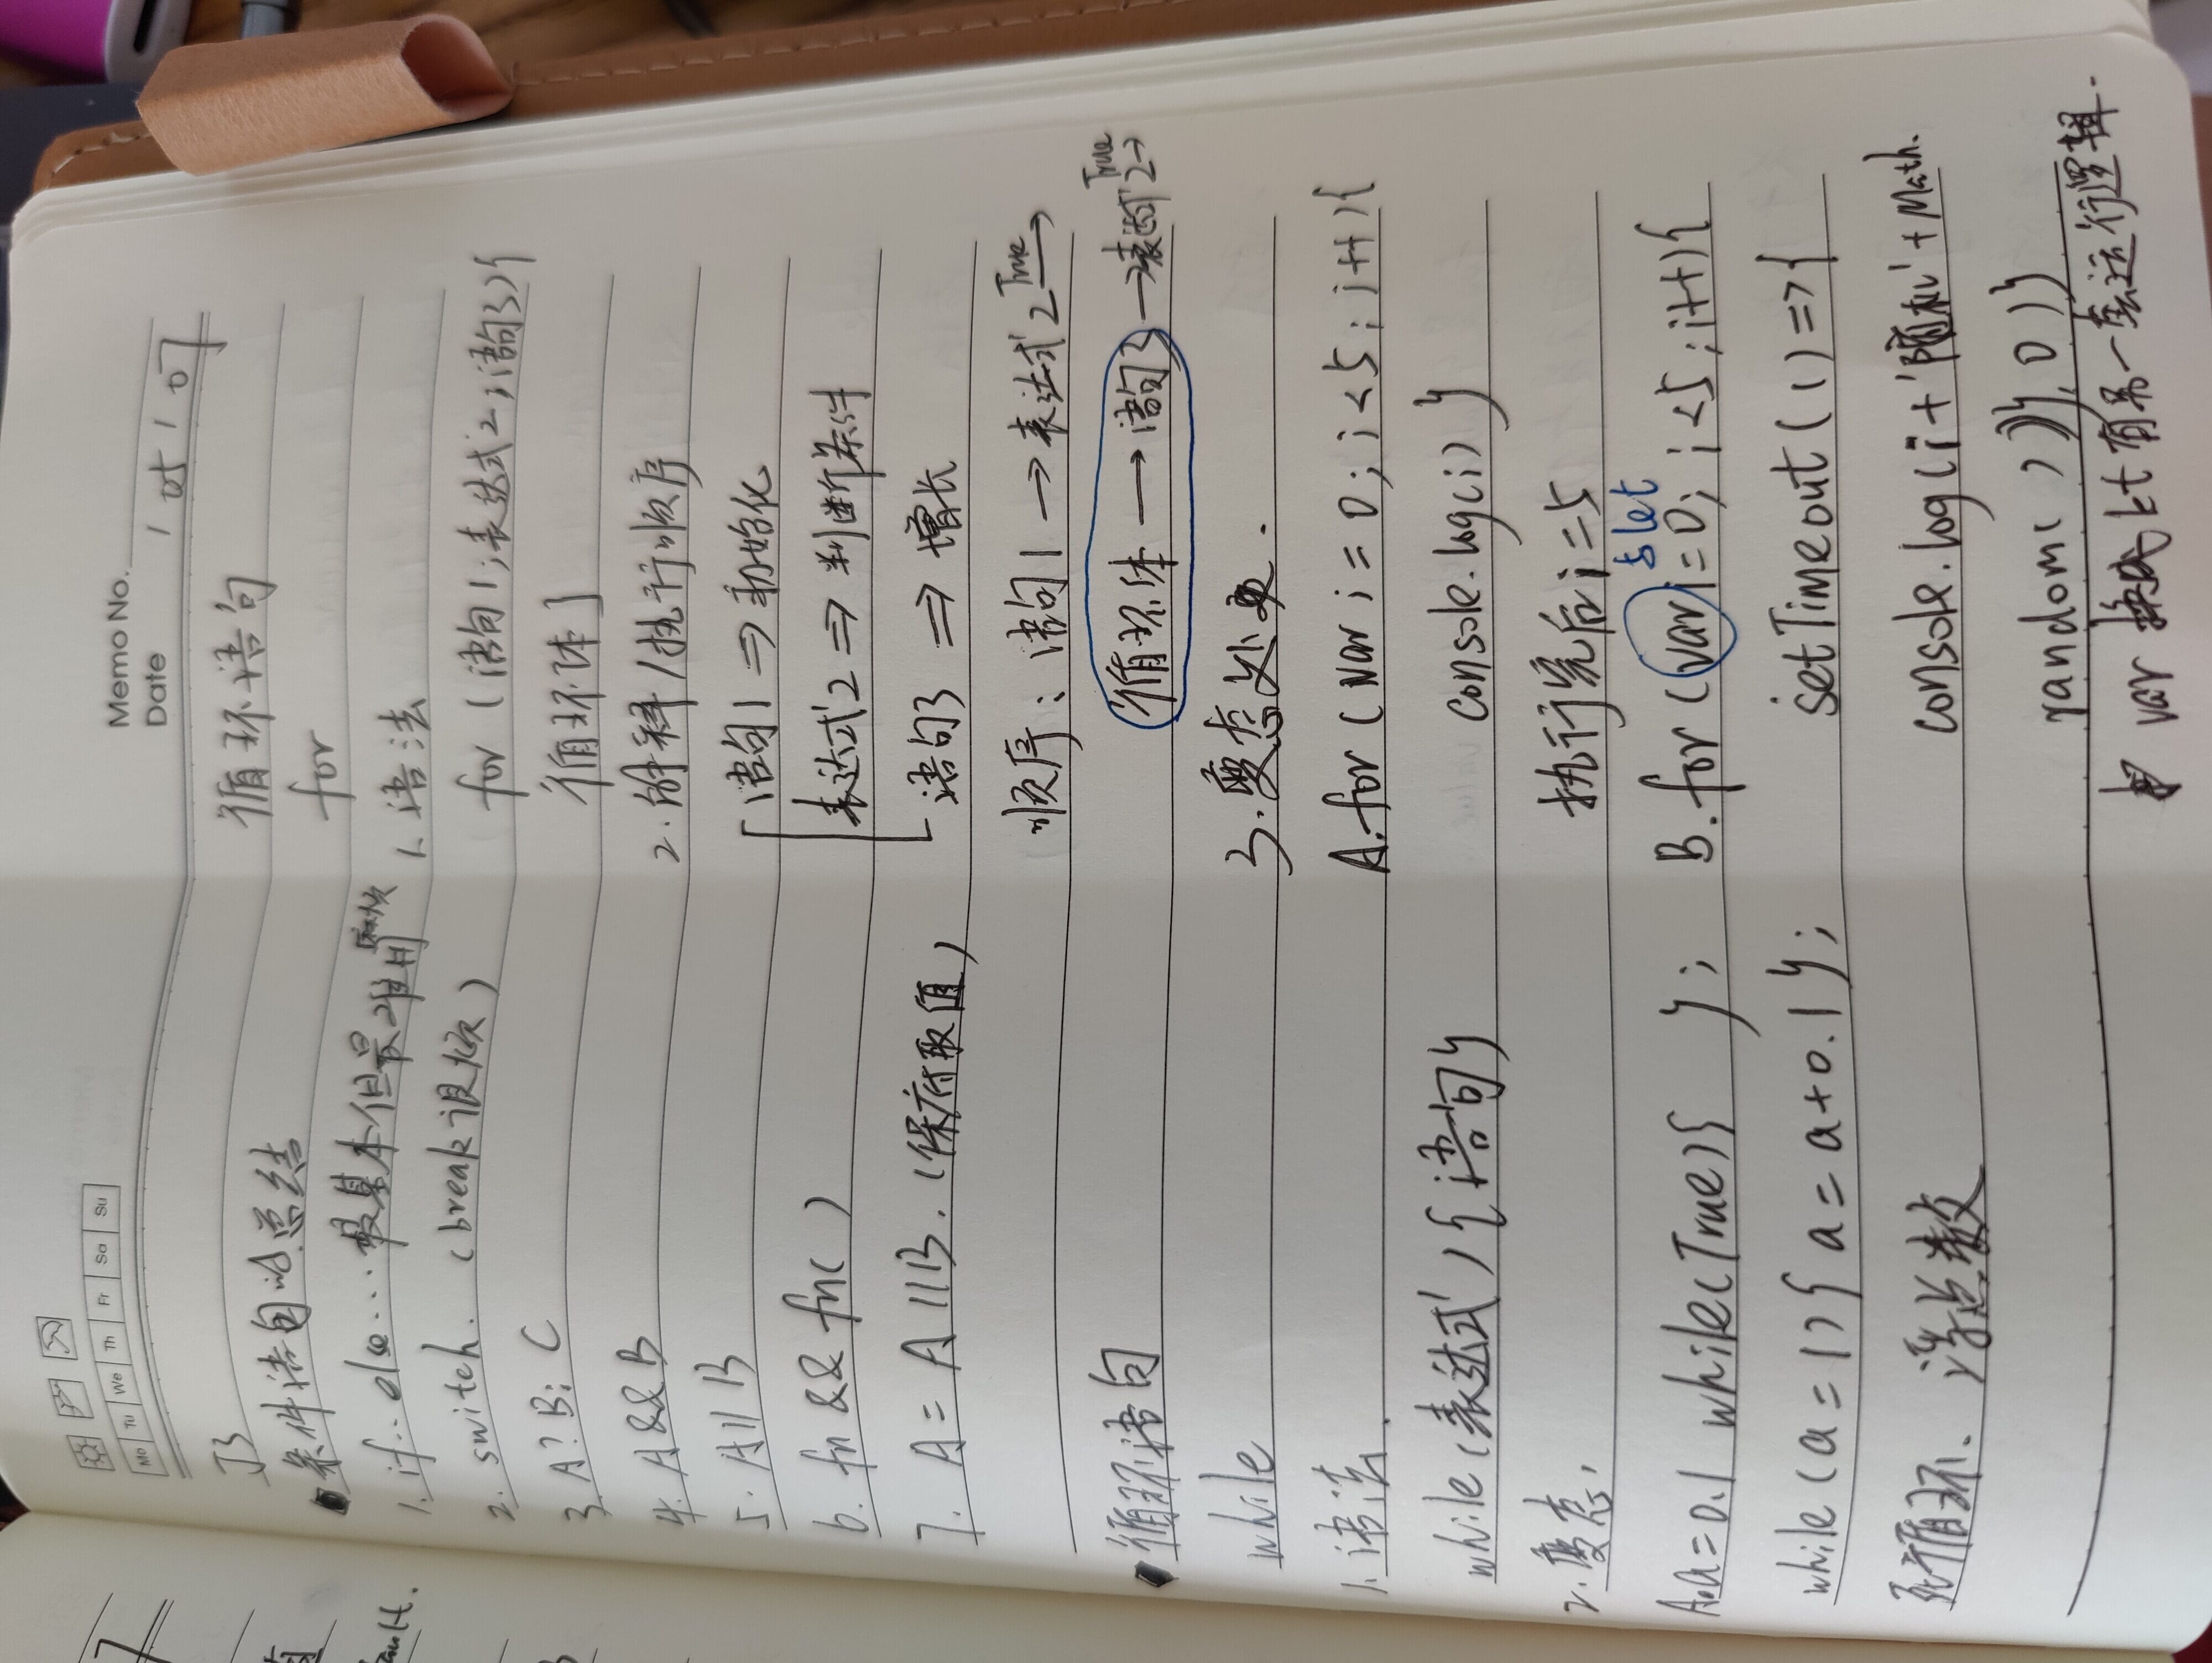 Mo Tu We Th Fr Sa Su
JS
条件语句的总结
1. if.. else... 最基本但最难用 麻烦
2. switch. (break 很烦)
3 A? B: C
4. A && B
5. A || B
6. fn && fn( )
7. A = A || B. (保底取值)
循环语句
while
1. 语法.
while (表达式) { 语句 }
2. 变态,
A. a = 0.1 while(True){ };
while (a = 1) { a = a + 0.1 };
死循环、浮点数
Memo No.
Date / 05 / 07
循环语句
for
1. 语法
for (语句1; 表达式2; 语句3){
循环体 }
2. 解释 / 执行顺序
语句1 => 初始化
表达式2 => 判断条件
语句3 => 增长
顺序: 语句1 → 表达式2 True →
循环体 → 语句3 → 表达式2 True →
3. 变态处理.
A. for ( var i = 0; i < 5; i++ ){
console.log(i) }
执行完后 i = 5
与 let
B. for (var i = 0; i < 5; i++){
setTimeout ( ( ) => {
console.log(i + '随机' + Math.
random( ) )}, 0 ) }
var 换成 let 有另一套运行逻辑.